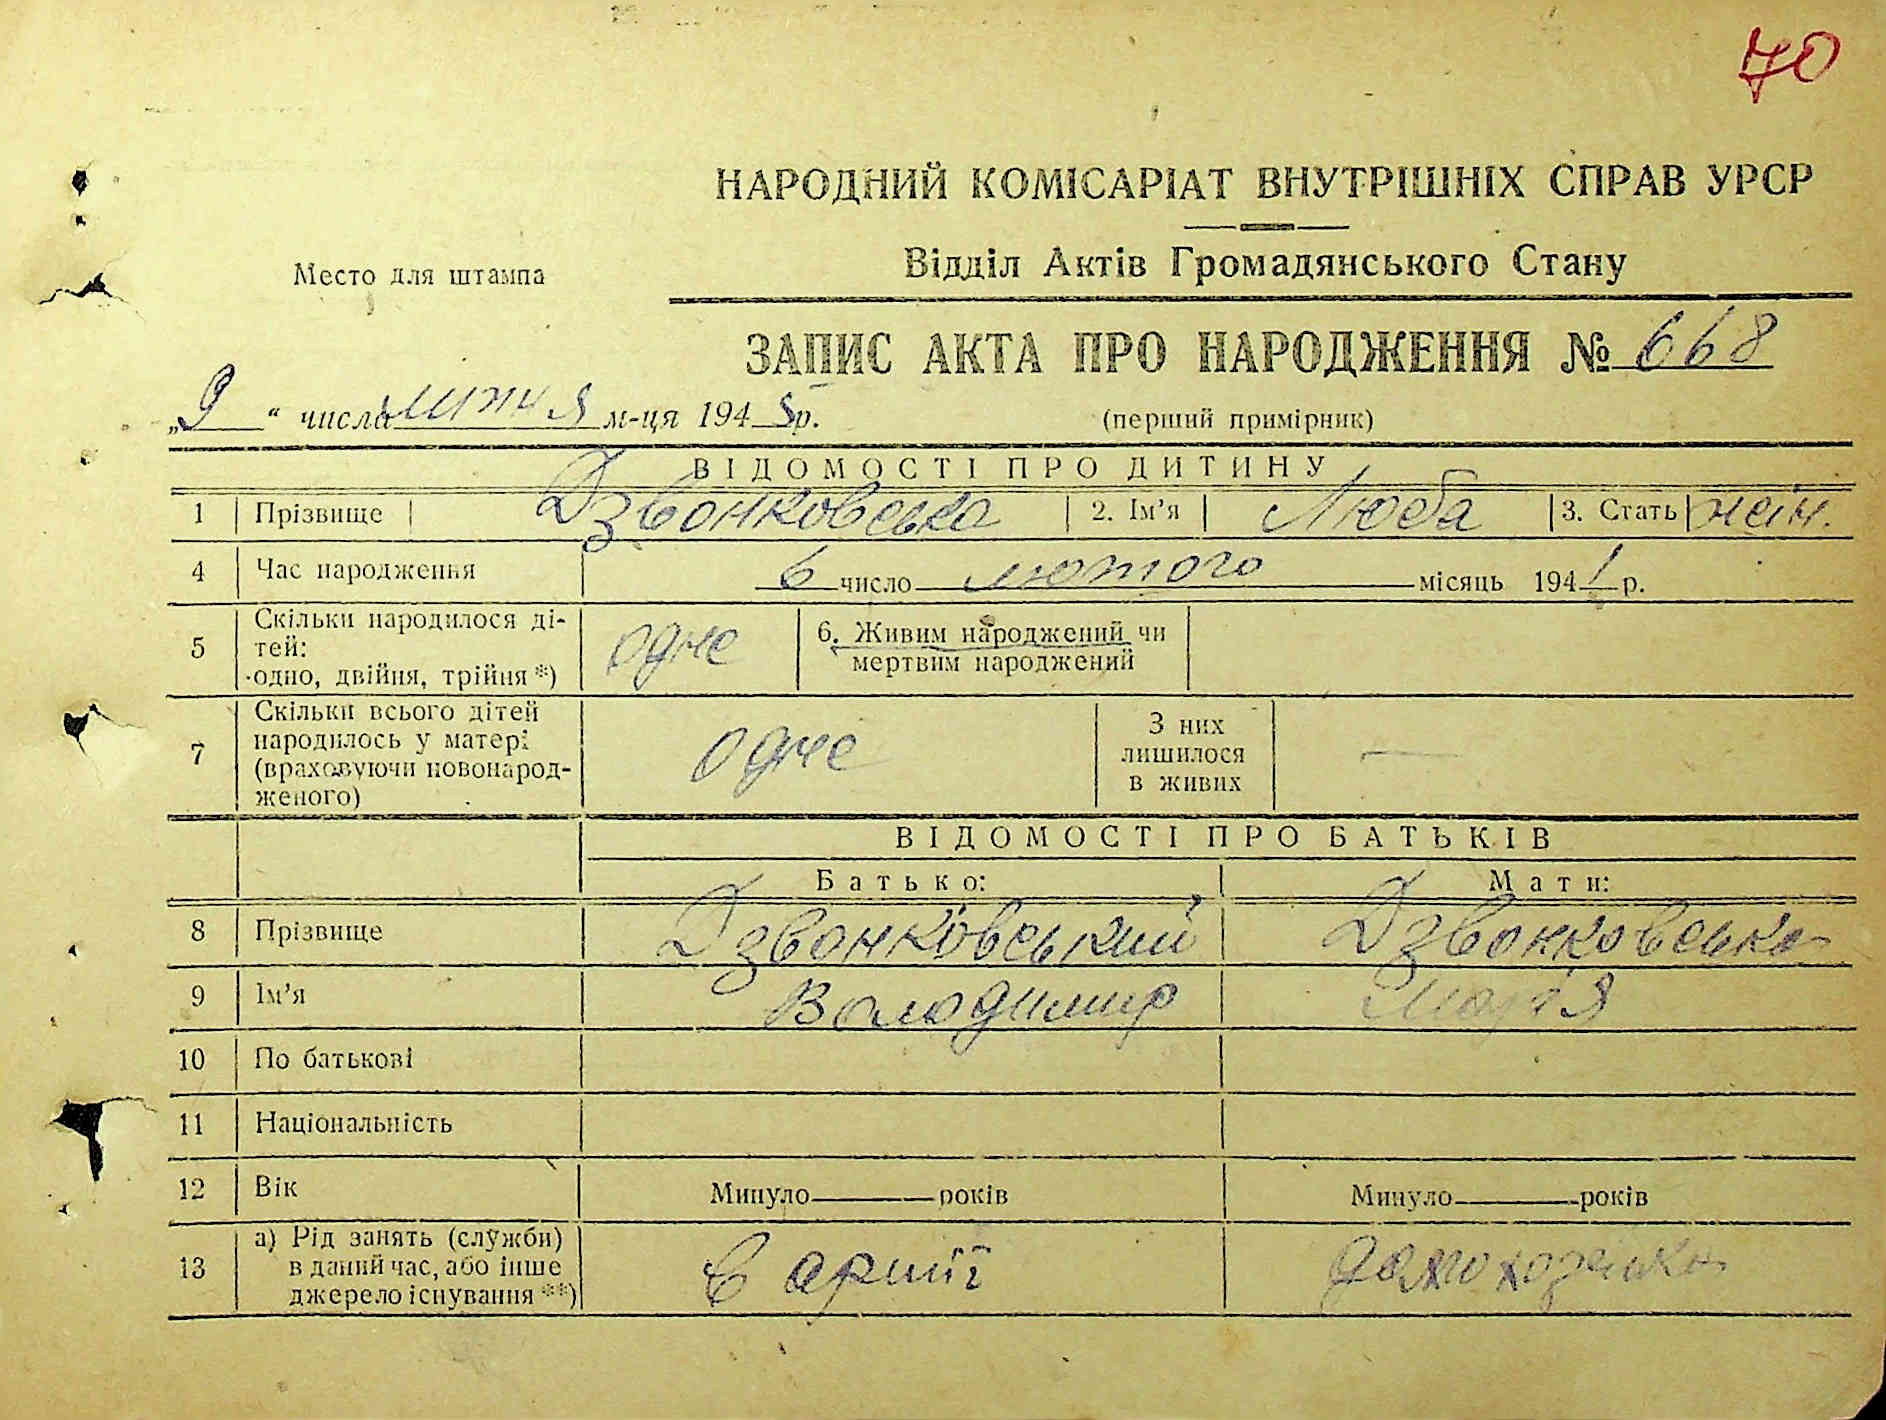 70
НАРОДНИЙ КОМІСАРІАТ ВНУТРІШНІХ СПРАВ УРСР
Место для штампа
Відділ Актів Громадянського Стану
ЗАПИС АКТА ПРО НАРОДЖЕННЯ № 668
„9“ числа липня м-ця 1945 р.
(перший примірник)
ВІДОМОСТІ ПРО ДИТИНУ
1 Прізвище Дзвонковська 2. Ім’я Люба 3. Стать жін.
4 Час народження 6 число лютого місяць 1941 р.
5 Скільки народилося ді-
тей:
одно, двійня, трійня *) одне 6. Живим народжений чи
мертвим народжений
7 Скільки всього дітей
народилось у матері
(враховуючи новонарод-
женого) одне З них
лишилося
в живих —
ВІДОМОСТІ ПРО БАТЬКІВ
Батько: Мати:
8 Прізвище Дзвонковський Дзвонковська
9 Ім’я Володимир Марія
10 По батькові
11 Національність
12 Вік Минуло років Минуло років
13 а) Рід занять (служби)
в даний час, або інше
джерело існування **) в армії